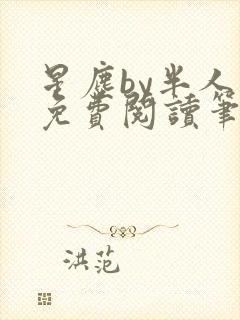 星塵by半人
免費閱讀筆
洪范